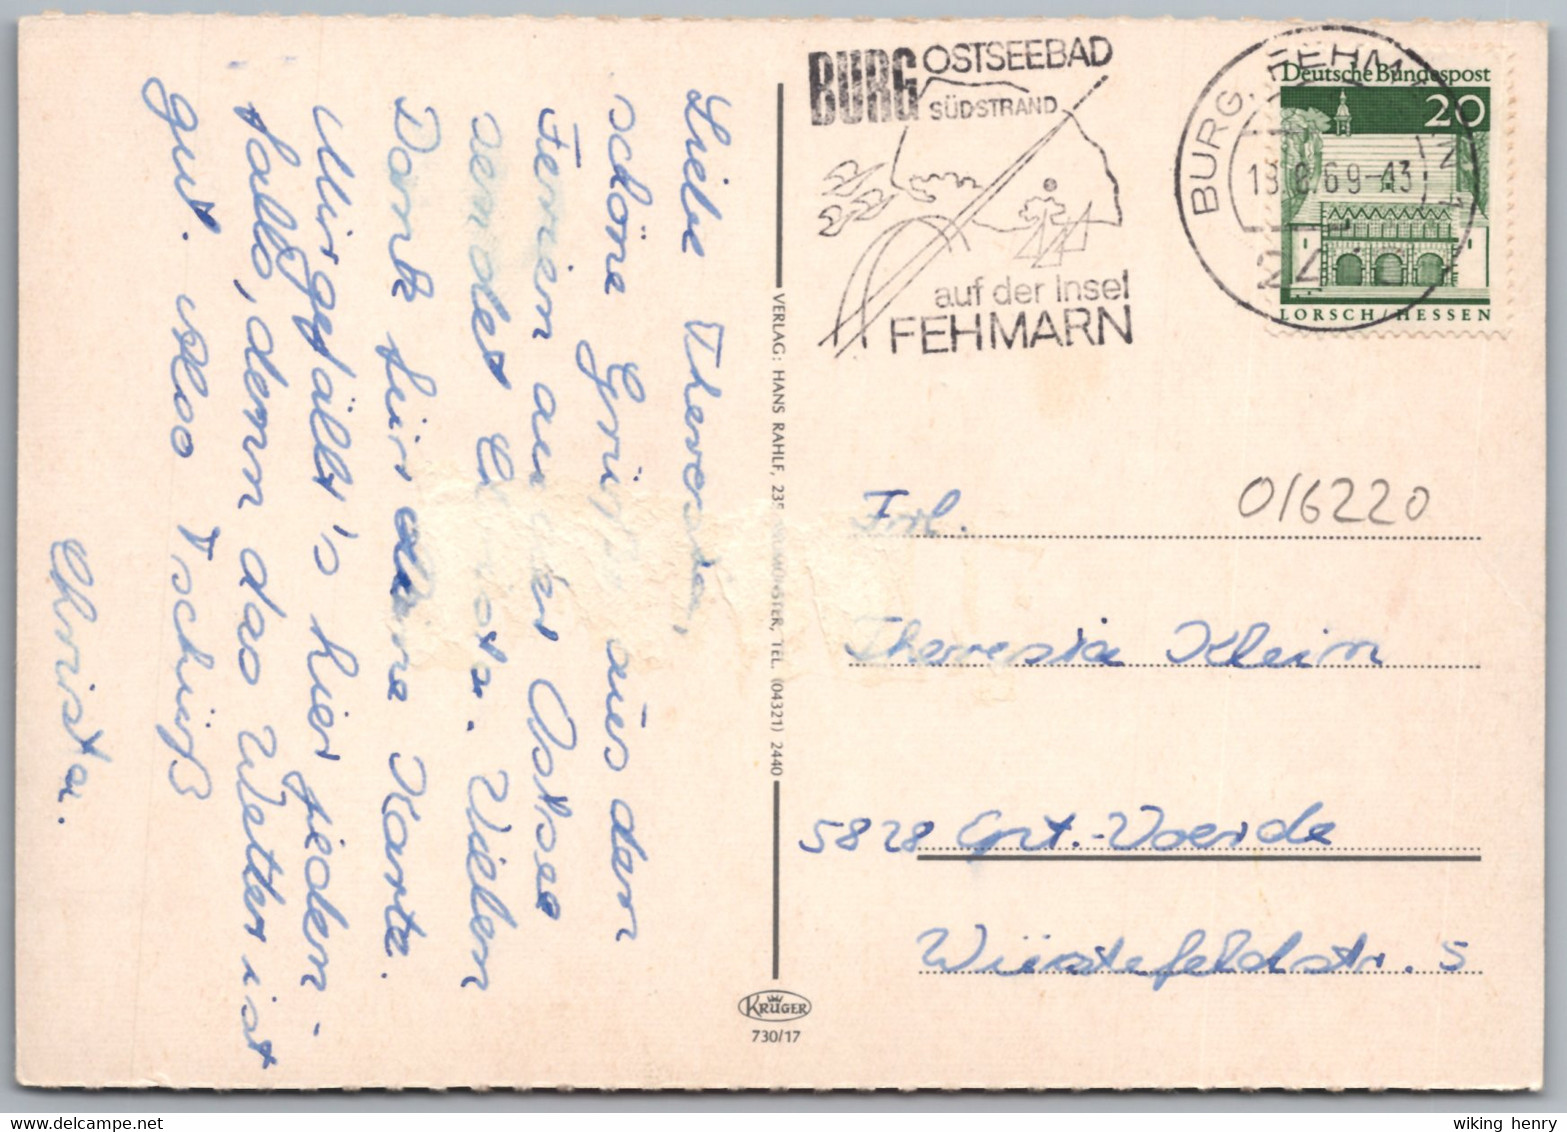 Liebe Theresia,
schöne Grüße aus den
Ferien an der Ostsee
sendet Christa. Vielen
Dank für deine Karte.
Mir gefällt's hier jeden-
falls, denn das Wetter ist
gut. Also Tschüß
Christa.
VERLAG: HANS RAHLF, 235 NEUMÜNSTER, TEL. (04321) 2440
KRÜGER
730/17
BURG OSTSEEBAD
SÜDSTRAND
auf der Insel
FEHMARN
BURG, FEHMARN 1
18.8.69-13
Deutsche Bundespost
20
LORSCH/HESSEN
016220
Frl.
Theresia Klein
5828 Gut.-Voerde
Wüstefeldstr. 5
wiking henry